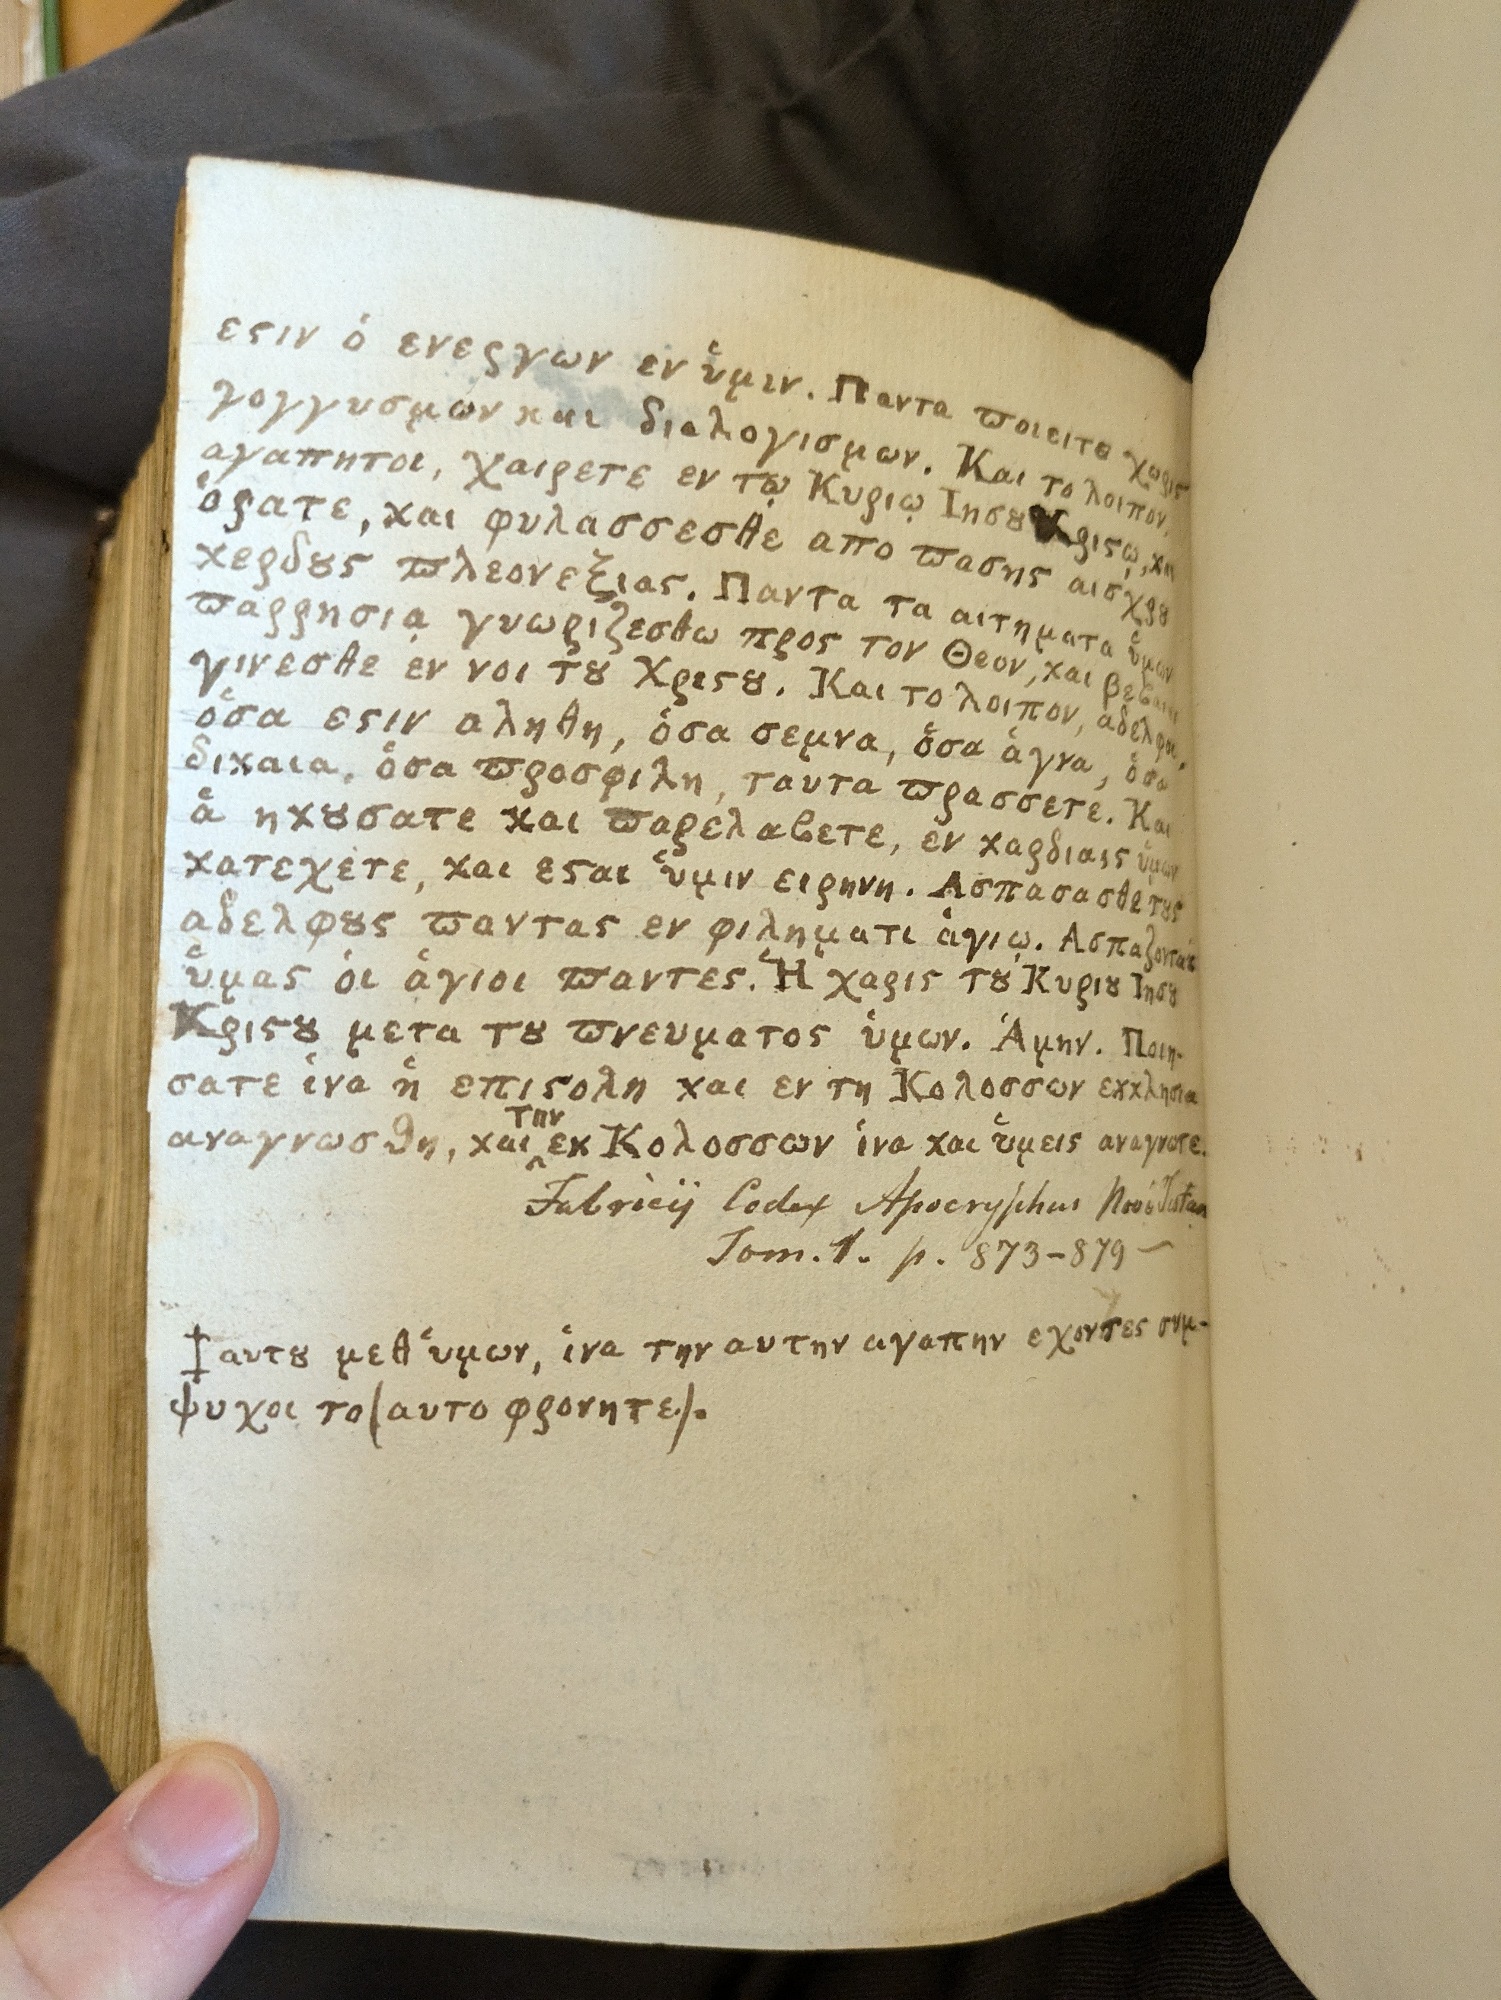 εϛιν ὁ ενεργων εν ὑμιν. Παντα ϖοιειτε χωρις
γογγυσμων και διαλογισμων. Και το λοιπον,
αγαπητοι, χαιρετε εν τῳ Κυριῳ Ιησȣ Χριϛῳ, και
ὁρατε, και φυλασσεσθε απο ϖασης αισχρȣ
κερδȣς ϖλεονεξιας. Παντα τα αιτηματα ὑμων
ϖαρρησιᾳ γνωριζεσθω προς τον Θεον, και βεβαιοι
γινεσθε εν νοι τȣ Χριϛȣ. Και το λοιπον, αδελφοι,
ὁσα εϛιν αληθη, ὁσα σεμνα, ὁσα ἁγνα, ὁσα
δικαια, ὁσα ϖροσφιλη, ταυτα ϖρασσετε. Και
ἁ ηκȣσατε και ϖαρελαβετε, εν καρδιαις ὑμων
κατεχετε, και εϛαι ὑμιν ειρηνη. Ασπασασθε τȣς
αδελφȣς ϖαντας εν φιληματι ἁγιῳ. Ασπαζονται
ὑμας ὁι ἁγιοι ϖαντες. Ἡ χαρις τȣ Κυριȣ Ιησȣ
Χριϛȣ μετα τȣ ϖνευματος ὑμων. Ἀμην. Ποιη-
σατε ἱνα ἡ επιϛολη και εν τη Κολοσσων εκκλησια
αναγνωσθη, και την εκ Κολοσσων ἱνα και ὑμεις αναγνωτε.
Fabricij Codex Apocryphus Novi Testam
Tom. 1. p. 873-879
‡ αυτȣ μεθ ὑμων, ἱνα την αυτην αγαπην εχοντες συμ-
ψυχοι το (αυτο φρονητε).